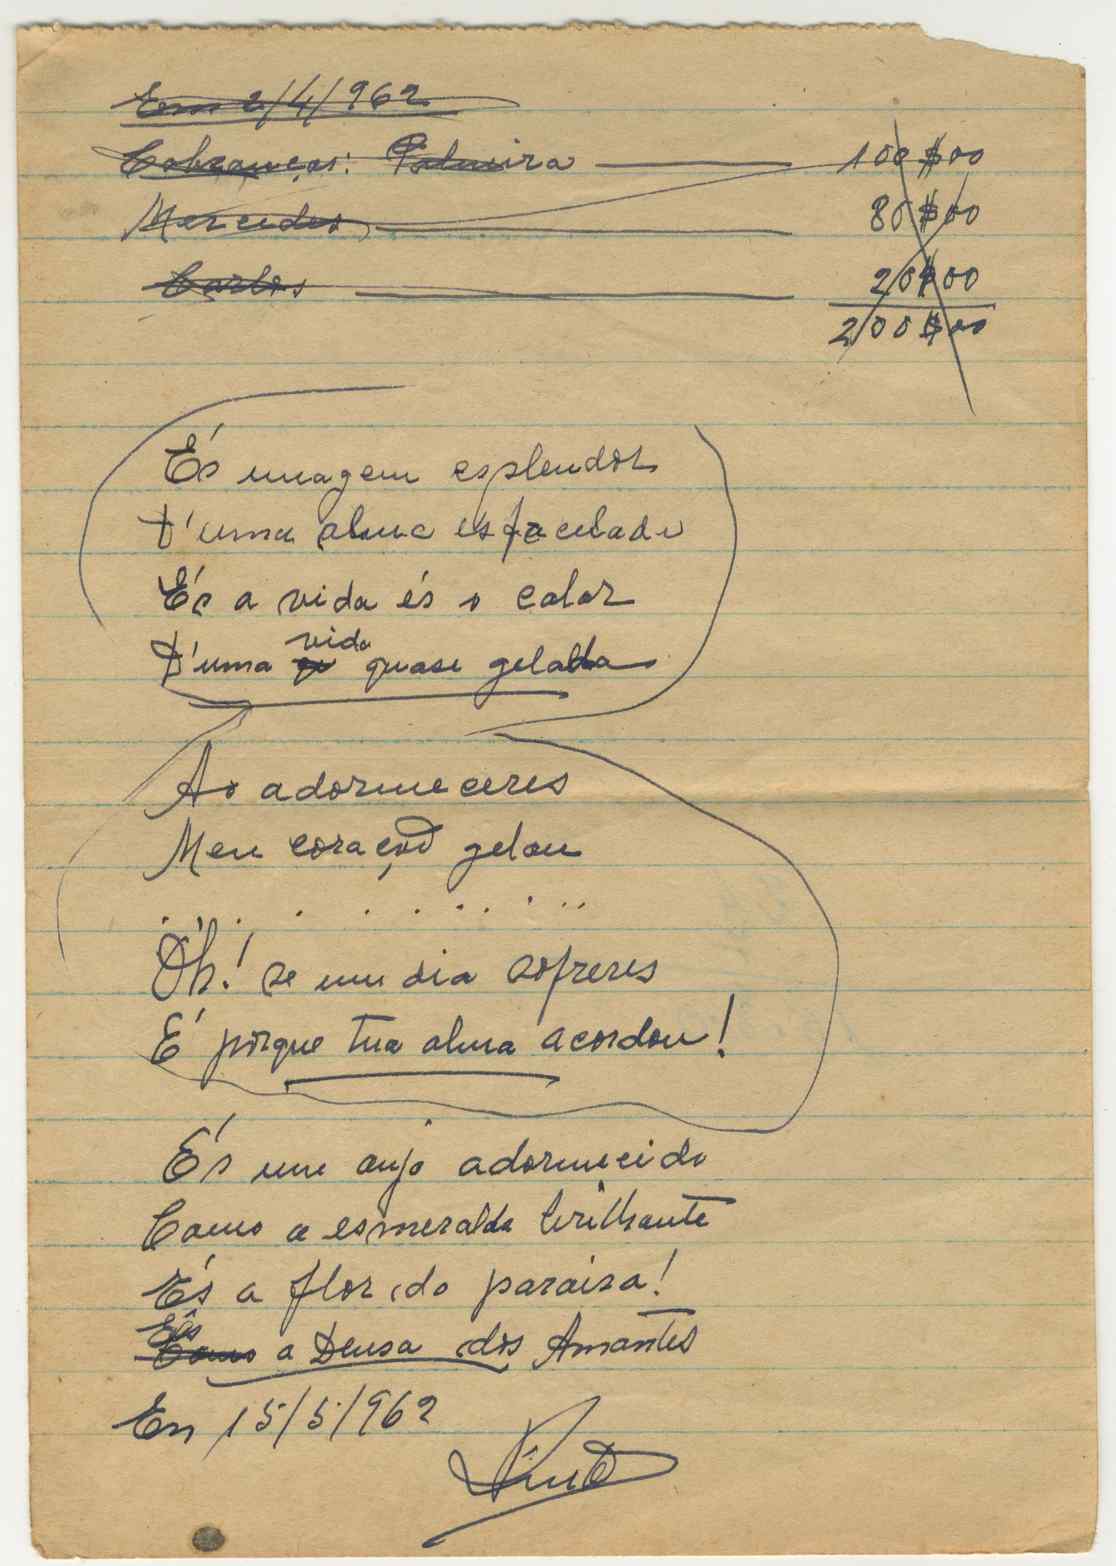 Em 2/4/962
Cobranças: Palmira 100$00
Mercedes, 80$00
Carlos 20$00
200$00
És imagem esplendor
D'uma alma esfacelada
És a vida és o calor
vida
D'uma quase gelada
Ao adormeceres
Meu coração gelou
. . . . . . . . . . . .
Oh! se um dia sofreres
É porque tua alma acordou!
És um anjo adormecido
Como a esmeralda brilhante
És a flor do paraiso!
És
Como a Deusa dos Amantes
Em 15/5/962
Pinto